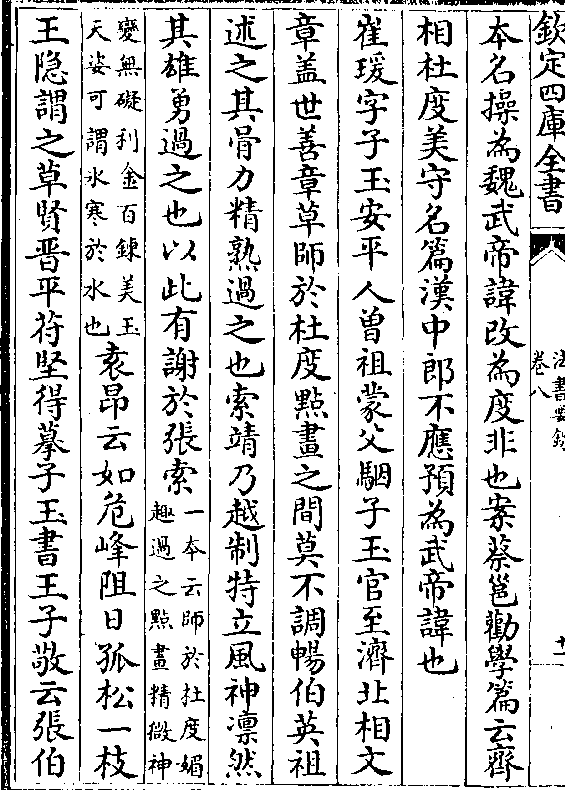 欽定四庫全書
法書要錄
卷八
十一
本名操為魏武帝諱改為度非也案蔡邕勸學篇云齊
相杜度美守名篇漢中郎不應預為武帝諱也
崔瑗字子玉安平人曾祖蒙父駰子玉官至濟北相文
章盖世善章草師於杜度點畫之間莫不調暢伯英祖
述之其骨力精熟過之也索靖乃越制特立風神凛然
其雄勇過之也以此有謝於張索一本云師於杜度媚
趣過之點畫精微神
變無礙利金百鍊美玉
天姿可謂氷寒於水也袁昂云如危峰阻日孤松一枝
王隐謂之草賢晋平苻坚得摹子玉書王子敬云張伯